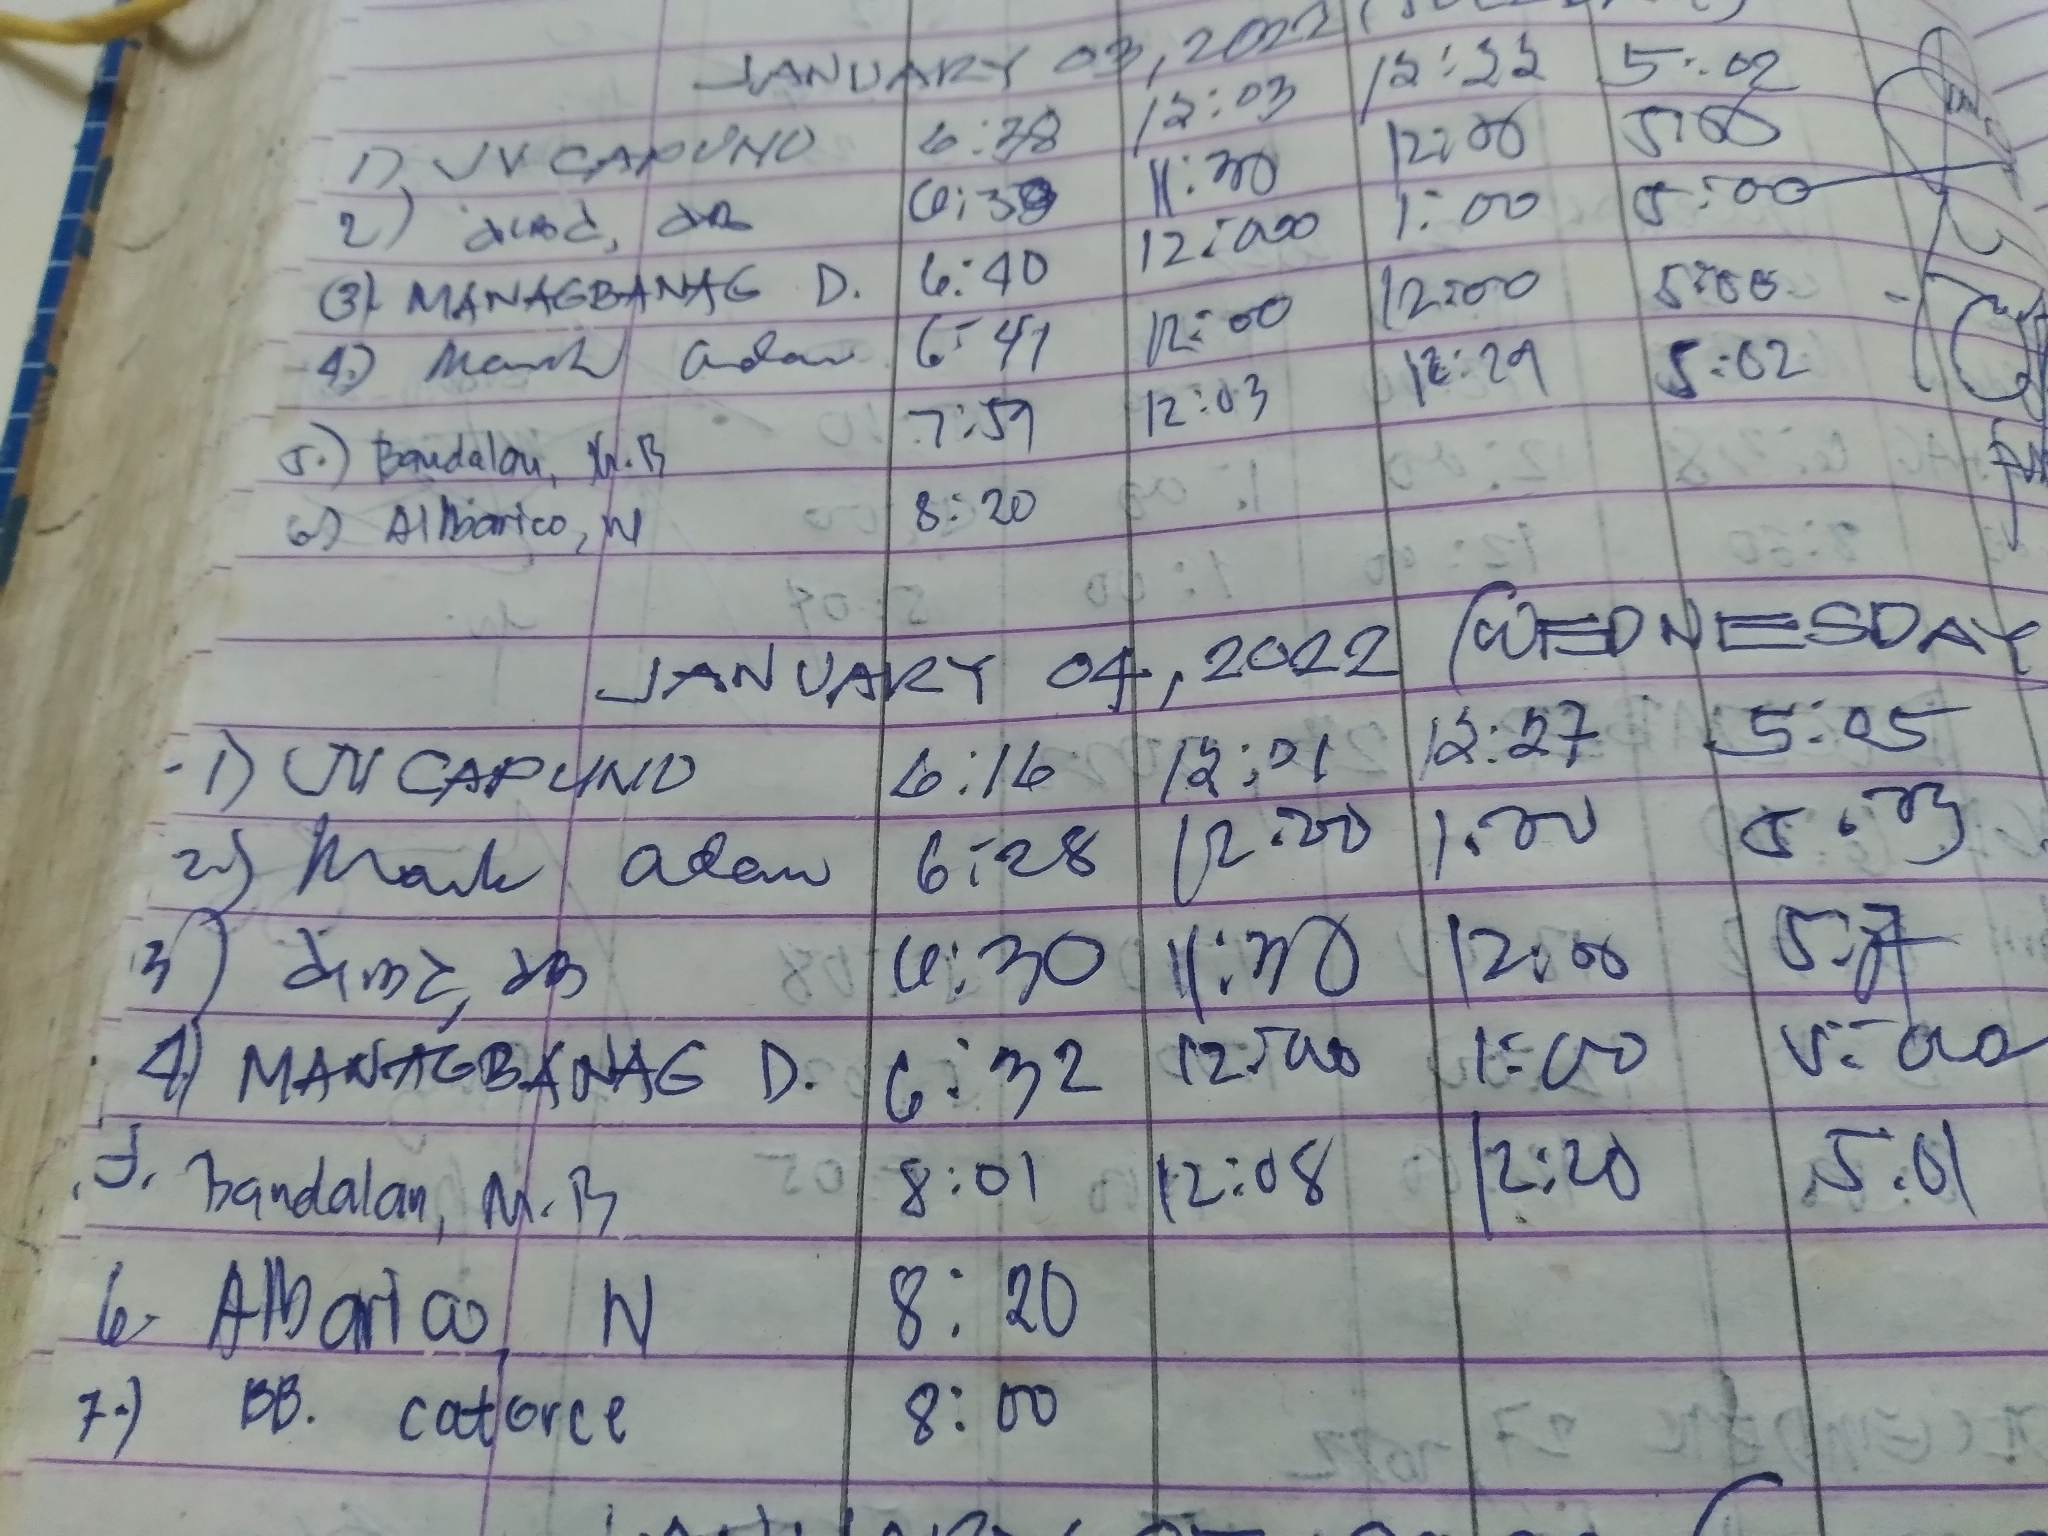 JANUARY 03, 2022
1) JV CAPUNO 6:38 12:03 12:22 5:02
2) 6:38 11:30 12:00 5:00
3) MANAGBANAG D. 6:40 12:00 1:00 5:00
4.) Mark adam 6:41 12:00 12:00 5:00
5.) Bandalan, M.B 7:59 12:03 12:29 5:02
6) Albarico, N 8:20
JANUARY 04, 2022 (WEDNESDAY
1) JV CAPUNO 6:16 12:01 12:27 5:05
2.) Mark adam 6:28 12:00 1:00 5:03
3) 6:30 11:30 12:00
4) MANAGBANAG D. 6:32 12:00 1:00 5:00
5. Bandalan, M.B 8:01 12:08 12:20 5:01
6- Albarico N 8:20
7.) BB. catorce 8:00